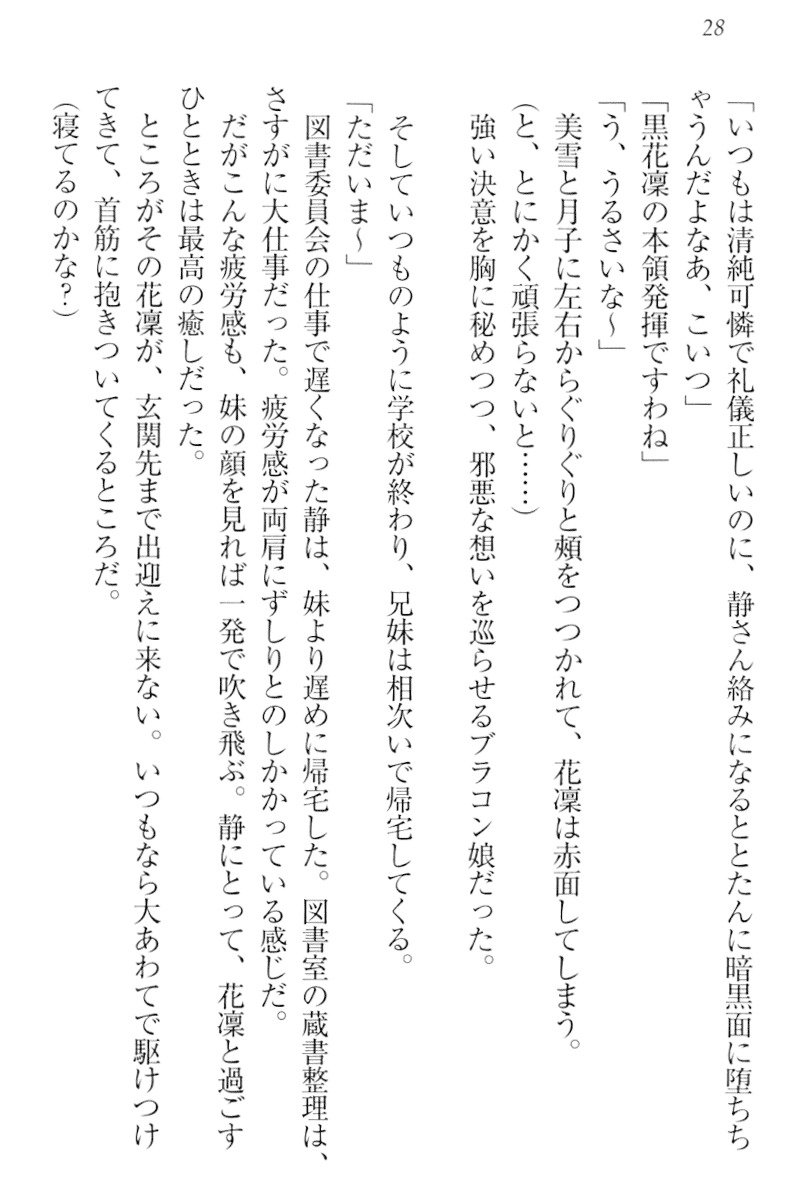 28
「いつもは清純可憐で礼儀正しいのに、静さん絡みになるととたんに暗黒面に堕ちち
ゃうんだよなあ、こいつ」
「黒花凜の本領発揮ですわね」
「う、うるさいな～」
美雪と月子に左右からぐりぐりと頰をつつかれて、花凜は赤面してしまう。
(と、とにかく頑張らないと……)
強い決意を胸に秘めつつ、邪悪な想いを巡らせるブラコン娘だった。
そしていつものように学校が終わり、兄妹は相次いで帰宅してくる。
「ただいま～」
図書委員会の仕事で遅くなった静は、妹より遅めに帰宅した。図書室の蔵書整理は、
さすがに大仕事だった。疲労感が両肩にずしりとのしかかっている感じだ。
だがこんな疲労感も、妹の顔を見れば一発で吹き飛ぶ。静にとって、花凜と過ごす
ひとときは最高の癒しだった。
ところがその花凜が、玄関先まで出迎えに来ない。いつもなら大あわてで駆けつけ
てきて、首筋に抱きついてくるところだ。
(寝てるのかな？)